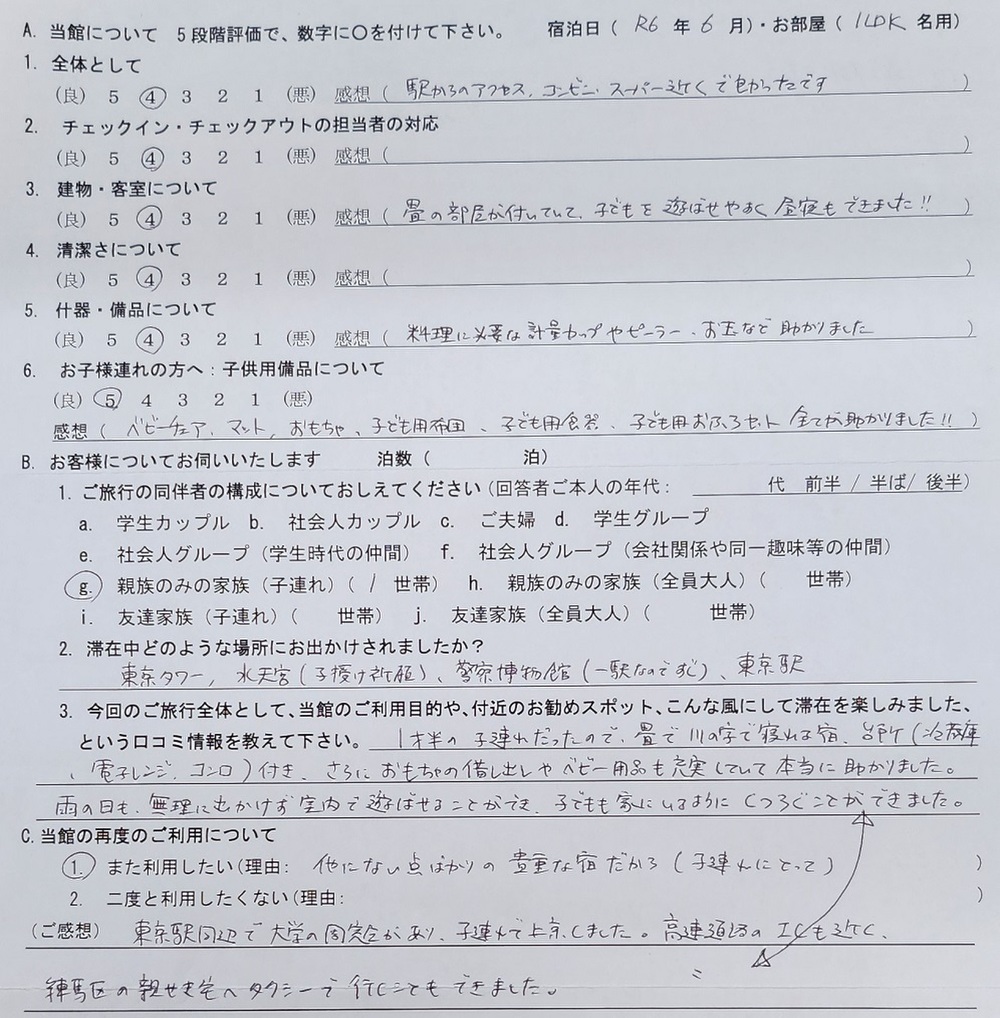 A. 当館について 5段階評価で、数字に○を付けて下さい。 宿泊日( R6 年 6 月)・お部屋( 1LDK 名用)
1. 全体として
(良) 5 4 3 2 1 (悪) 感想( 駅からのアクセス、コンビニ・スーパー近くで良かったです )
2. チェックイン・チェックアウトの担当者の対応
(良) 5 4 3 2 1 (悪) 感想( )
3. 建物・客室について
(良) 5 4 3 2 1 (悪) 感想( 畳の部屋が付いていて、子どもを遊ばせやすく昼寝もできました!! )
4. 清潔さについて
(良) 5 4 3 2 1 (悪) 感想( )
5. 什器・備品について
(良) 5 4 3 2 1 (悪) 感想( 料理に必要な計量カップやピーラー、お玉など助かりました )
6. お子様連れの方へ:子供用備品について
(良) 5 4 3 2 1 (悪)
感想( ベビーチェア、マット、おもちゃ、子ども用布団、子ども用食器、子ども用おふろセット全てが助かりました!! )
B. お客様についてお伺いいたします 泊数( 泊)
1. ご旅行の同伴者の構成についておしえてください(回答者ご本人の年代: 代 前半 / 半ば/ 後半)
a. 学生カップル b. 社会人カップル c. ご夫婦 d. 学生グループ
e. 社会人グループ(学生時代の仲間) f. 社会人グループ(会社関係や同一趣味等の仲間)
g. 親族のみの家族(子連れ)( 1 世帯) h. 親族のみの家族(全員大人)( 世帯)
i. 友達家族(子連れ)( 世帯) j. 友達家族(全員大人)( 世帯)
2. 滞在中どのような場所にお出かけされましたか?
東京タワー, 水天宮(子授け祈願)、警察博物館(一駅なのですぐ)、東京駅
3. 今回のご旅行全体として、当館のご利用目的や、付近のお勧めスポット、こんな風にして滞在を楽しみました、
という口コミ情報を教えて下さい。 1才半の子連れだったので、畳で川の字で寝れる宿、台所(冷蔵庫
、電子レンジ、コンロ)付き、さらにおもちゃの借し出しやベビー用品も充実していて本当に助かりました。
雨の日も、無理に出かけず室内で遊ばせることができ、子どもも家にいるようにくつろぐことができました。
C. 当館の再度のご利用について
1. また利用したい(理由: 他にない点ばかりの貴重な宿だから(子連れにとって) )
2. 二度と利用したくない(理由: )
(ご感想) 東京駅周辺で大学の同窓会があり、子連れで上京しました。高速道路のICも近く、
練馬区の親せき宅へタクシーで行くこともできました。